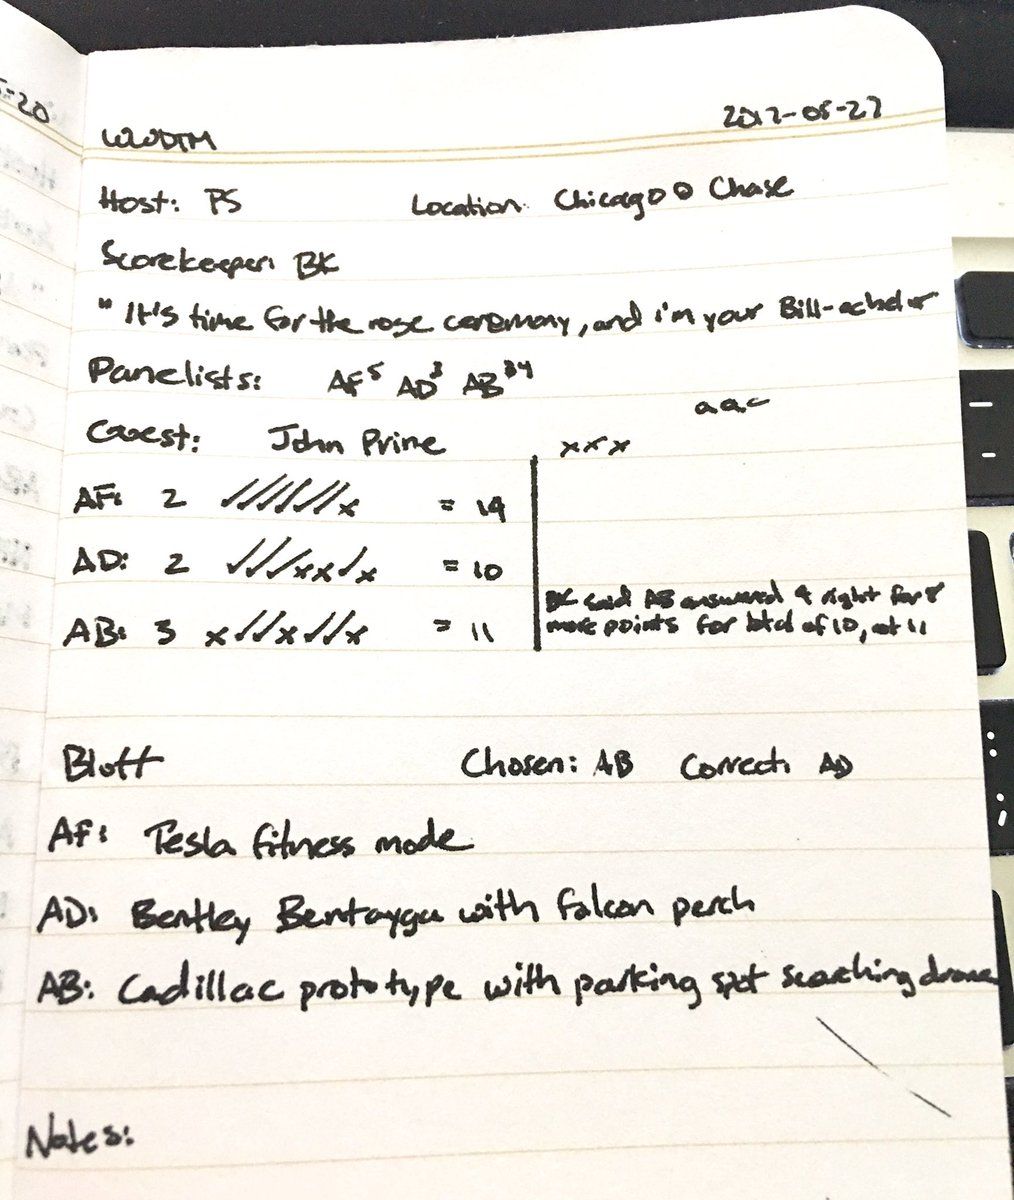 -20
WWDTM 2017-05-27
Host: PS Location: Chicago @ Chase
Scorekeeper: BK
"It's time for the rose ceremony, and I'm your Bill-achelor
Panelists: AF⁵ AD³ AB³⁴
aac
Guest: John Prine xxx
AF: 2 ✓✓✓✓✓✓x = 14
AD: 2 ✓✓✓xx✓x = 10
BK said AB answered 4 right for 8
AB: 3 x✓✓x✓✓x = 11 more points for total of 10, not 11
Bluff Chosen: AB Correct: AD
AF: Tesla fitness mode
AD: Bentley Bentayga with falcon perch
AB: Cadillac prototype with parking spot searching drone
Notes: